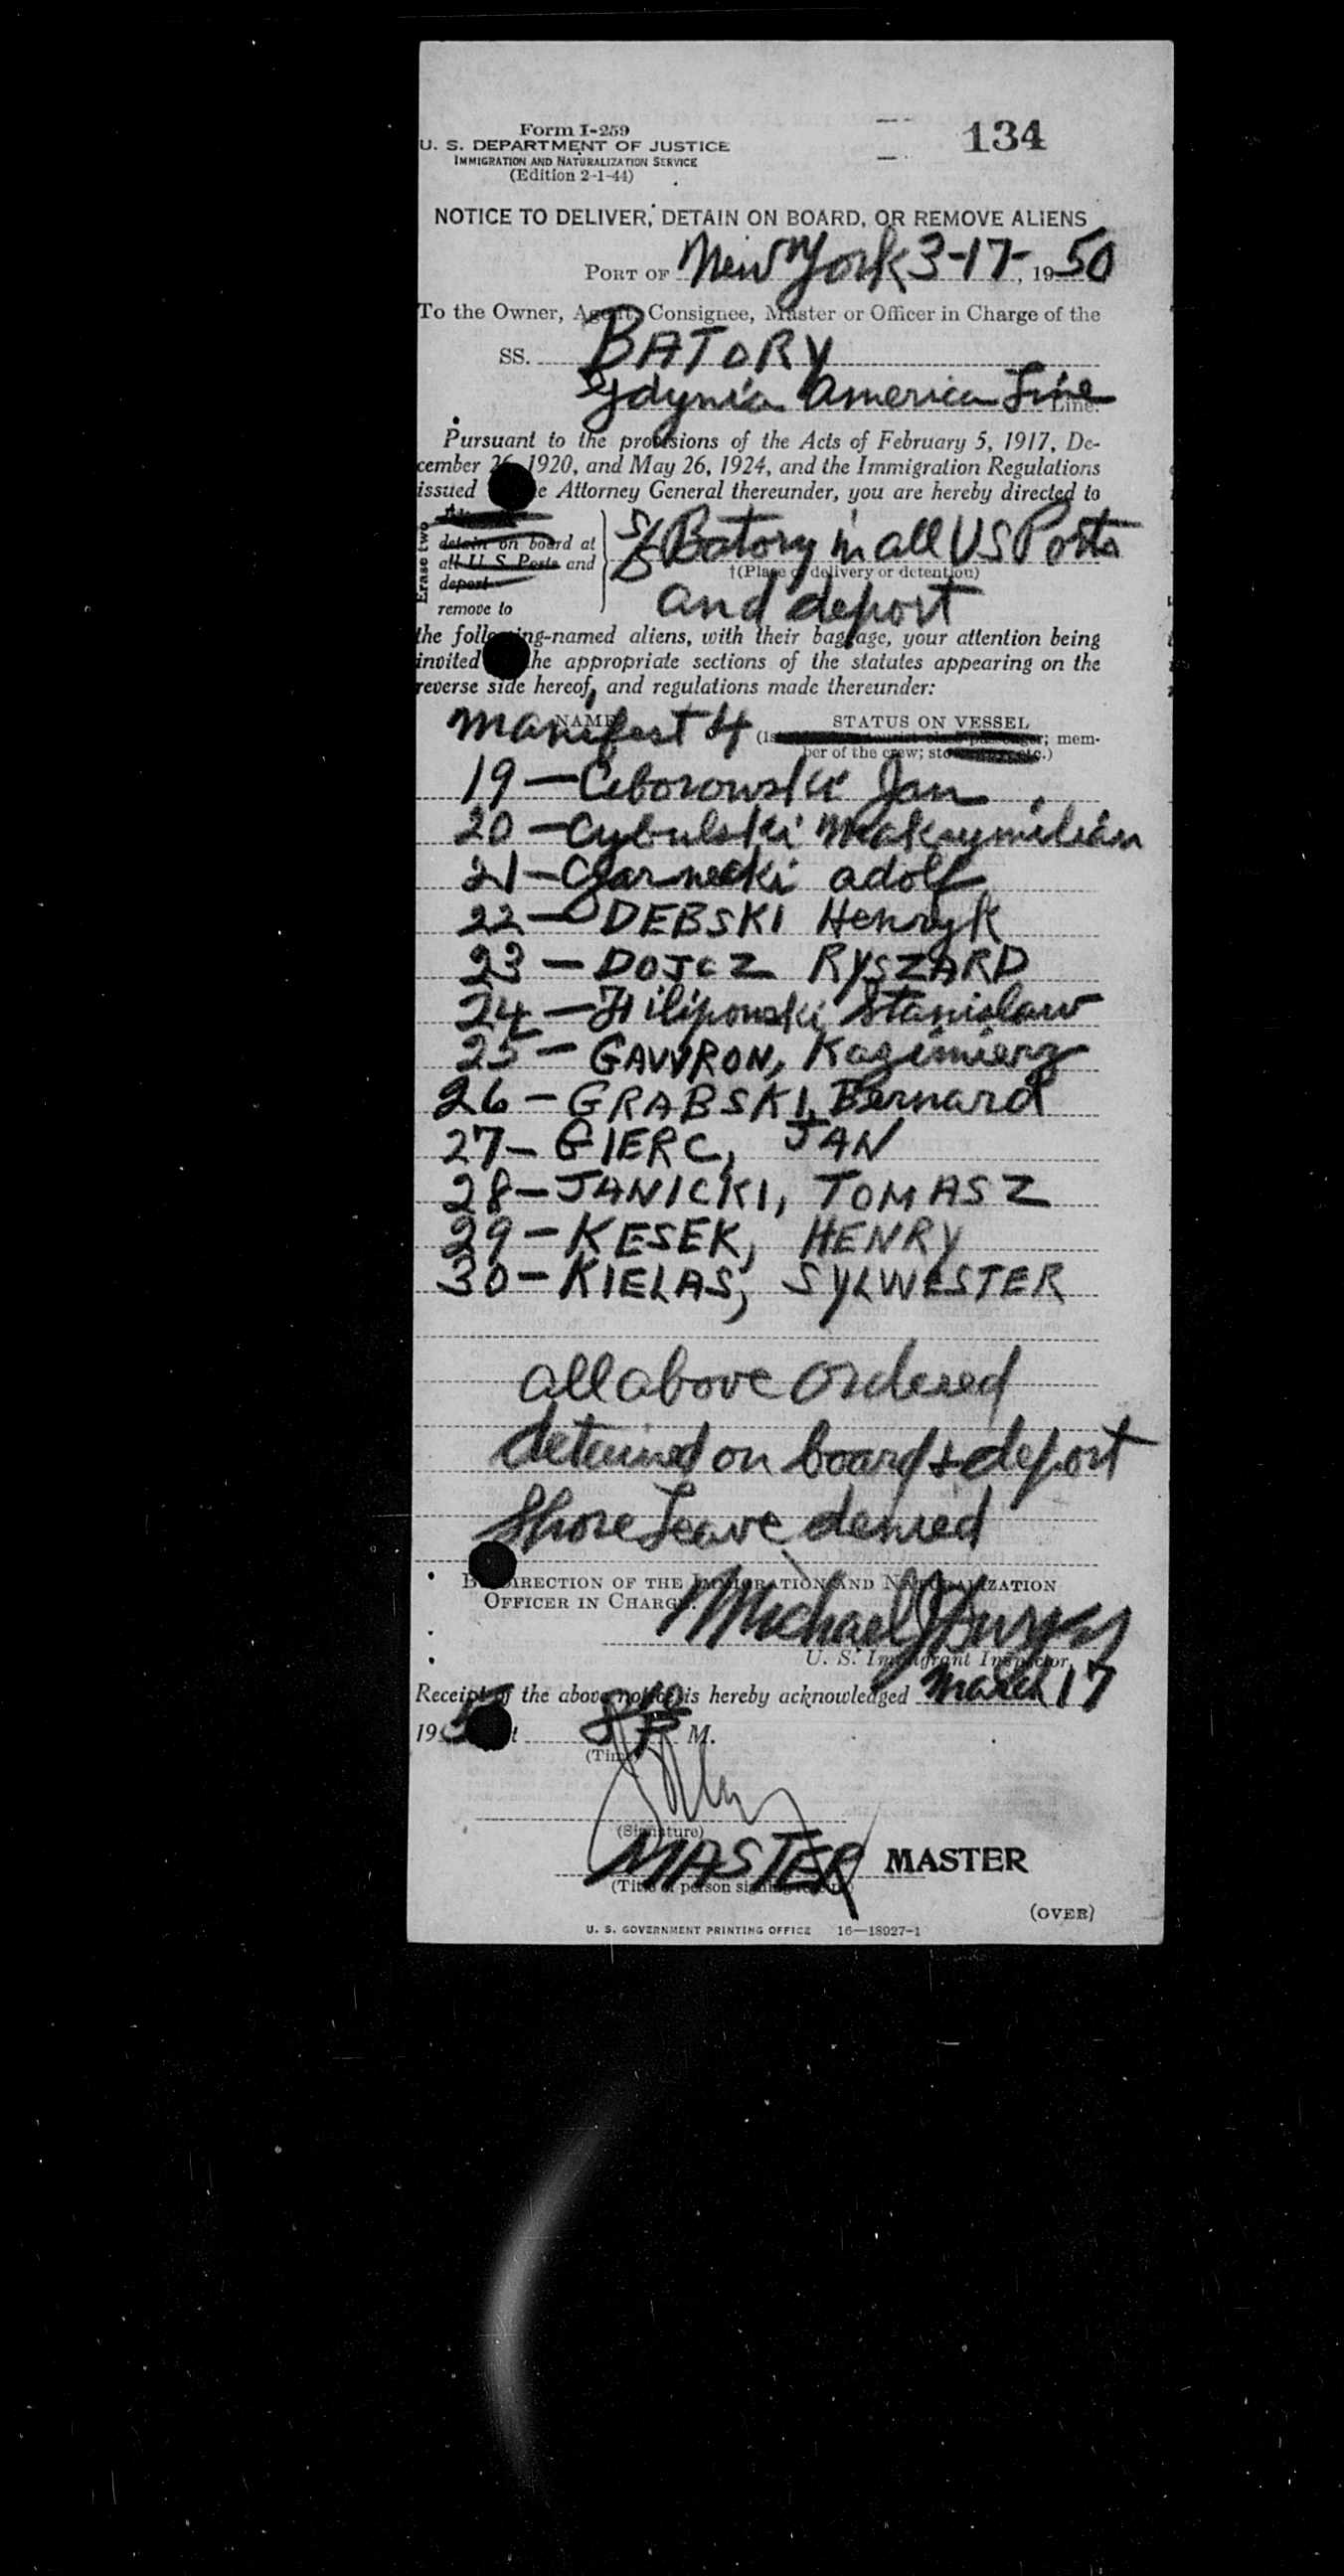 Form I-259
U. S. DEPARTMENT OF JUSTICE
IMMIGRATION AND NATURALIZATION SERVICE
(Edition 2-1-44)
134
NOTICE TO DELIVER, DETAIN ON BOARD, OR REMOVE ALIENS
PORT OF New York 3-17-, 1950
To the Owner, Agent, Consignee, Master or Officer in Charge of the
SS. BATORY
Gdynia America Line Line.
Pursuant to the provisions of the Acts of February 5, 1917, De-
cember 26, 1920, and May 26, 1924, and the Immigration Regulations
issued Attorney General thereunder, you are hereby directed to
Erase two
detain on board at
all U. S. Ports and
deport
remove to
Batory in all US Ports
†(Place of delivery or detention)
and deport
the following-named aliens, with their baggage, your attention being
invited the appropriate sections of the statutes appearing on the
reverse side hereof, and regulations made thereunder:
NAME
manifest 4
STATUS ON VESSEL
mem-
ber of the crew;
19 - Ciborowski Jan
20 - Cybulski Maksymilian
21 - Czarnecki adolf
22 - DEBSKI Henryk
23 - DOJCZ RYSZARD
24 - Filipowski Stanislaw
25 - GAWRON, Kazimierz
26 - GRABSKI, Bernard
27 - GIERC, JAN
28 - JANICKI, TOMASZ
29 - KESEK, HENRY
30 - KIELAS, SYLWESTER
all above ordered
detained on board & deport
Shore Leave denied
BY DIRECTION OF THE IMMIGRATION AND NATURALIZATION
OFFICER IN CHARGE.
Michael J
U. S. Immigrant Inspector.
Receipt of the above notice is hereby acknowledged March 17
195 M.
(Time)
(Signature)
MASTER MASTER
(Title of person signing receipt)
(OVER)
U. S. GOVERNMENT PRINTING OFFICE 16—18927-1